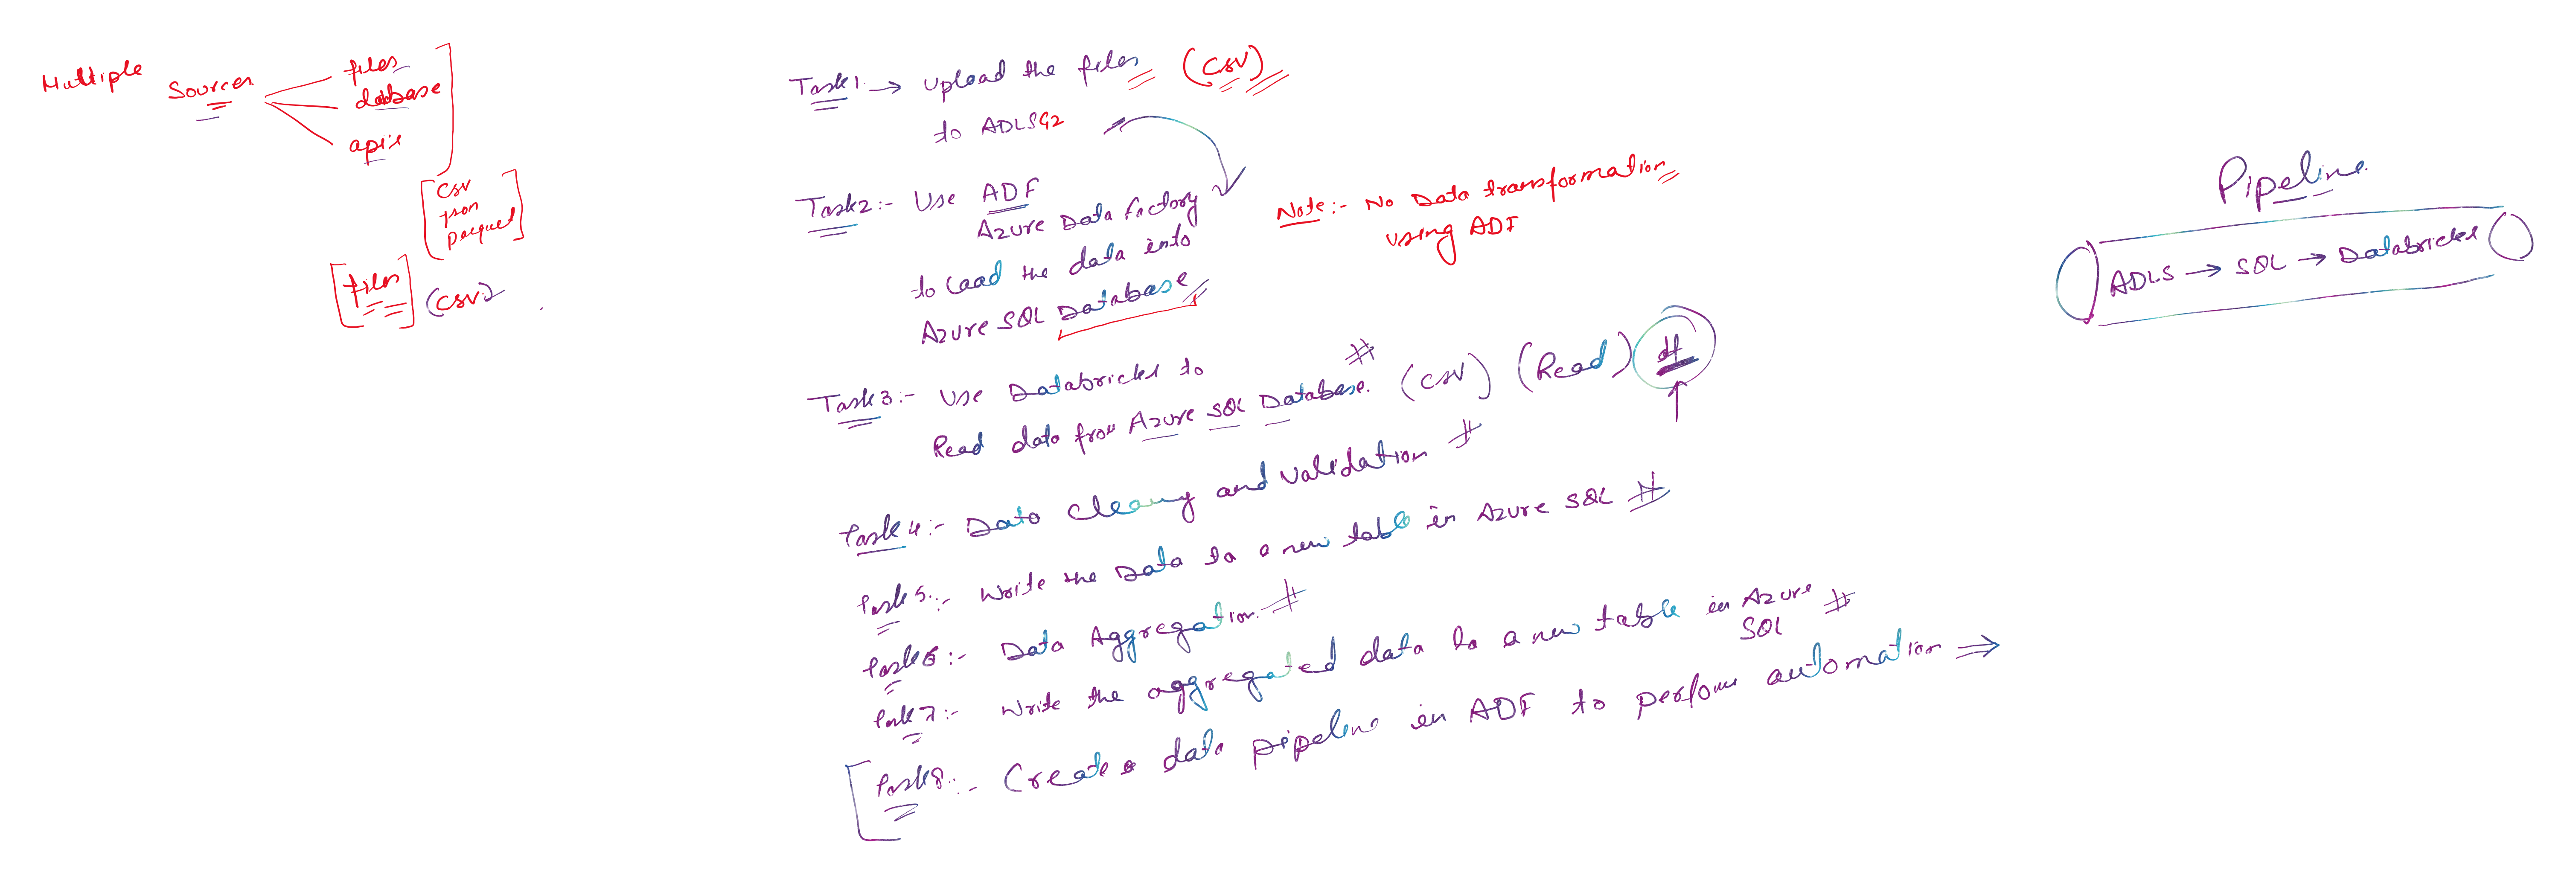 Multiple Sources
files
database
apis
csv
json
parquet
files (csv)
Task1 → upload the files (csv)
to ADLSG2
Task2:- Use ADF
Azure Data Factory
to Load the data into
Azure SQL Database
Note:- No Data transformation
using ADF
Task3:- Use Databricks to
Read data from Azure SQL Database. # (csv) (Read) df
Task4:- Data Cleaning and validation #
Task5:- Write the Data to a new table in Azure SQL #
Task6:- Data Aggregation. #
Task7:- Write the aggregated data to a new table in Azure SQL #
Task8:- Create a data pipeline in ADF to perform automation ⇒
Pipeline
ADLS → SQL → Databricks